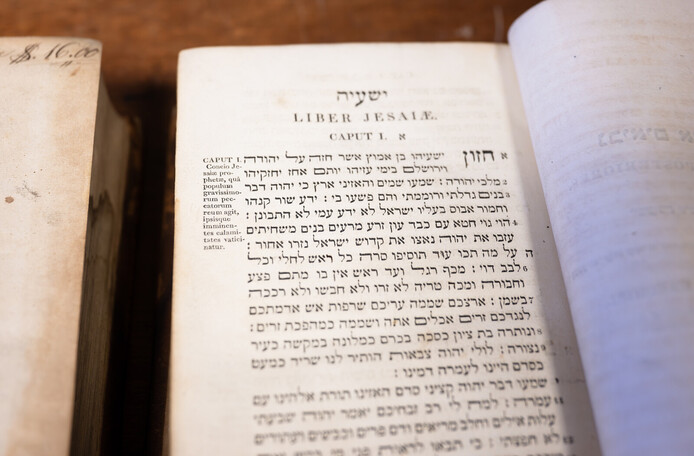 $16.00
ישעיה
LIBER JESAIÆ.
CAPUT I. א
CAPUT I.
Concio Je-
saiæ pro-
phetæ, quâ
populum
gravissimo-
rum pec-
catorum
reum agit,
ipsique
imminen-
tes calami-
tates vatici-
natur.
א חזון ישעיהו בן אמוץ אשר חזה על יהודה
וירושלם בימי עזיהו יותם אחז יחזקיהו
מלכי יהודה : שמעו שמים והאזיני ארץ כי יהוה דבר
בנים גדלתי ורוממתי והם פשעו בי : ידע שור קנהו
וחמור אבוס בעליו ישראל לא ידע עמי לא התבונן :
הוי גוי חטא עם כבד עון זרע מרעים בנים משחיתים
עזבו את יהוה נאצו את קדוש ישראל נזרו אחור :
ה על מה תכו עוד תוסיפו סרה כל ראש לחלי וכל
לבב דוי : מכף רגל ועד ראש אין בו מתם פצע
וחבורה ומכה טריה לא זרו ולא חבשו ולא רככה
בשמן : ארצכם שממה עריכם שרפות אש אדמתכם
לנגדכם זרים אכלים אתה ושממה כמהפכת זרים :
ונותרה בת ציון כסכה בכרם כמלונה במקשה כעיר
נצורה : לולי יהוה צבאות הותיר לנו שריד כמעט
כסדם היינו לעמרה דמינו :
שמעו דבר יהוה קציני סדם האזינו תורת אלהינו עם
עמרה : למה לי רב זבחיכם יאמר יהוה שבעתי
עלות אילים וחלב מריאים ודם פרים וכבשים ועתודים
לא חפצתי : כי תבאו לראות פני